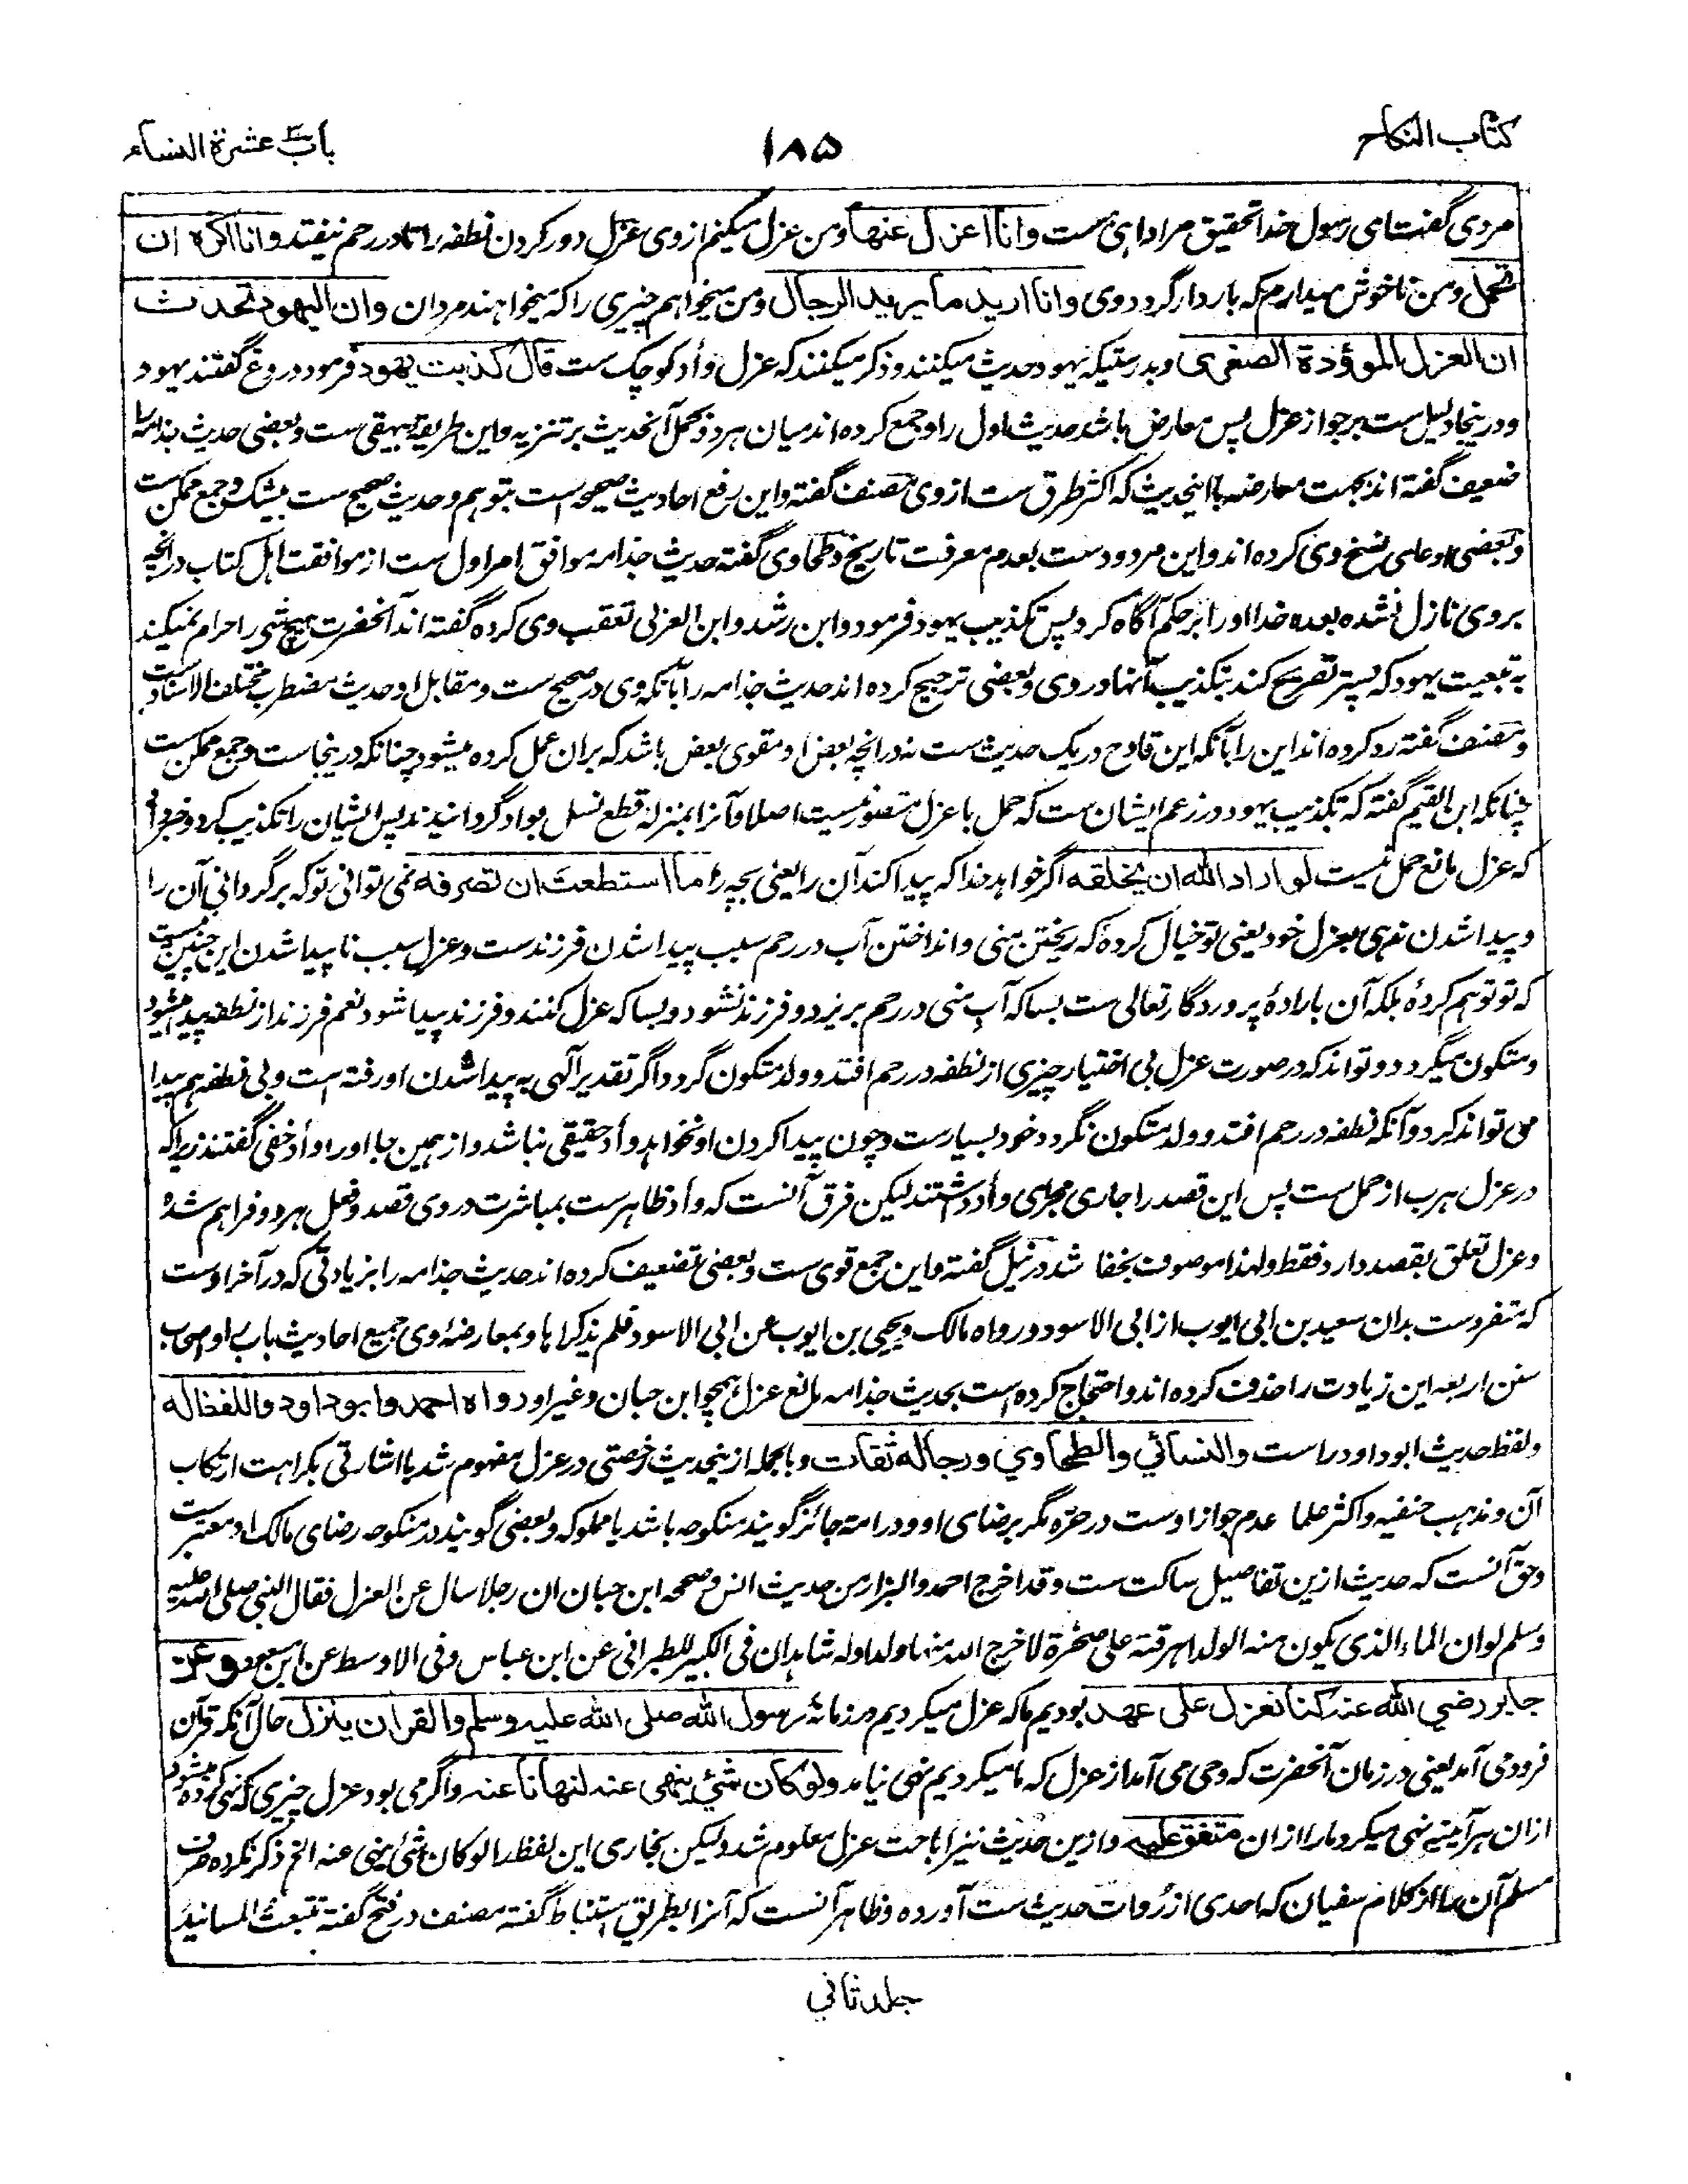 كتاب النكاح
١٨٥
باب عشرة النساء
مردی گفت ای رسول خدا تحقیق مرا داهی ست وانا اعزل عنها ومن عزل میکنم از وی عزل دور کردن نطفه را تا در رحم نیفتد وانا اکره ان
تحمل ومن ناخوش میدارم که باردار گردد وی وانا ارید ما یرید الرجال ومن میخواهم چیزی را که میخواهند مردان وان الیهود تحدث
ان العزل الموؤدة الصغری وبدرستیکه یهود حدیث میکنند وذکر میکنند که عزل وأد کوچک ست قال کذبت یهود فرمود دروغ گفتند یهود
ودرینجا دلیل ست بر جواز عزل پس معارض باشد حدیث اول را وجمع کرده اند میان هر دو بحمل آنحدیث بر تنزیه واین طریقه بیهقی ست وبعضی حدیث جذامه را
ضعیف گفته اند بجهت معارضه با اینحدیث که اکثر طرق ست از وی مصنف گفته واین رفع احادیث صحیحه است بتوهم وحدیث صحیح ست بیشک وجمع ممکن ست
وبعضی ادعای نسخ وی کرده اند واین مردود ست بعدم معرفت تاریخ وطحاوی گفته حدیث جذامه موافق امر اول ست از موافقت اهل کتاب در آنچه
بر وی نازل نشده بعده خدا او را بر حکم آگاه کرد پس تکذیب یهود فرمود وابن رشد وابن العربی تعقب وی کرده گفته اند آنحضرت هیچ شی را حرام نمیکند
به تبعیت یهود که پستر تصریح کند بتکذیب آنها در وی وبعضی ترجیح کرده اند حدیث جذامه را بآنکه وی در صحیح ست ومقابل او حدیث مضطرب مختلف الاسناد ست
ومصنف گفته رد کرده اند این را بآنکه این قادح در یک حدیث ست نه در آنچه بعض او مقوی بعض باشد که بران عمل کرده میشود چنانکه درینجا ست وجمع ممکن ست
چنانکه ابن القیم گفته که تکذیب یهود در زعم ایشان ست که حمل با عزل متصور نیست اصلا وآنرا بمنزله قطع نسل بوأد گردانیدند پس ایشان را تکذیب کرد وخبر داد
که عزل مانع حمل نیست لو اراد الله ان یخلقه اگر خواهد خدا که پیدا کند آن را یعنی بچه را ما استطعت ان تصرفه نمی توانی تو که برگردانی آن را
وپیدا شدن نهی بعزل خود یعنی تو خیال کردهٔ که ریختن منی وانداختن آب در رحم سبب پیدا شدن فرزند ست وعزل سبب نا پیدا شدن این چنین نیست
که تو توهم کردهٔ بلکه آن بارادهٔ پروردگار تعالی ست بسا که آب منی در رحم بریزد وفرزند نشود وبسا که عزل کنند وفرزند پیدا شود نعم فرزند از نطفه پیدا میشود
ومتکون میگردد وتواند که در صورت عزل بی اختیار چیزی از نطفه در رحم افتد وولد متکون گردد اگر تقدیر آلهی به پیدا شدن او رفته است وبی نطفه هم پیدا
می تواند کرد وآنکه نطفه در رحم افتد وولد متکون نگردد خود بسیار ست وچون پیدا کردن او نخواهد وأد حقیقی نباشد واز همین جا او را وأد خفی گفتند زیراکه
در عزل هرب از حمل ست پس این قصد را جاری مجرای وأد داشتند لیکن فرق آنست که وأد ظاهر ست بمباشرت در وی قصد وفعل هر دو فراهم شده
وعزل تعلق بقصد دارد فقط ولهذا موصوف بخفا شد در نیل گفته واین جمع قوی ست وبعضی تضعیف کرده اند حدیث جذامه را بزیادتی که در آخر اوست
که متفرد ست بدان سعید بن ابی ایوب از ابی الاسود ورواه مالک ویحیی بن ایوب عن ابی الاسود فلم یذکراها وبمعارضهٔ وی جمیع احادیث باب را واصحاب
سنن اربعه این زیادت را حذف کرده اند واحتجاج کرده است بحدیث جذامه مانع عزل همچو ابن حبان وغیر او رواه احمد وابوداود واللفظ له
ولفظ حدیث ابوداود راست والنسائي والطحاوي ورجاله ثقات وبالجمله ازینحدیث رخصتی در عزل مفهوم شد با اشارتی بکراهت ارتکاب
آن ومذهب حنفیه واکثر علما عدم جواز اوست در حره مگر برضای او ودر امة جائز گویند منکوحه باشد یا مملوکه وبعضی گویند در منکوحه رضای مالک او معتبر ست
وحق آنست که حدیث ازین تفاصیل ساکت ست وقد اخرج احمد والبزار من حدیث انس وصححه ابن حبان ان رجلا سال عن العزل فقال النبی صلی الله علیه
وسلم لو ان الماء الذی یکون منه الولد اهرقته علی صخرة لاخرج الله منها ولدا وله شاهدان فی الکبیر للطبرانی عن ابن عباس وفی الاوسط عن ابن مسعود وعن
جابر رضي الله عنه کنا نعزل علی عهد بودیم ما که عزل میکردیم در زمانهٔ رسول الله صلی الله علیه وسلم والقران ینزل حال آنکه قرآن
فرود می آمد یعنی در زمان آنحضرت که وحی می آمد از عزل که ما میکردیم نهی نیامد ولو کان شيء ینهی عنه لنهانا عنه واگر می بود عزل چیزی که نهی کرده میشود
ازان هر آئینه نهی میکرد ما را ازان متفق علیه وازین حدیث نیز اباحت عزل معلوم شد ولیکن بخاری این لفظ را لو کان شئ ینهی عنه الخ ذکر نکرده صرف
مسلم آن را از کلام سفیان که احدی از روات حدیث ست آورده وظاهر آنست که آنرا بطریق استنباط گفته مصنف در فتح گفته تتبعت المسانید
جلد ثاني